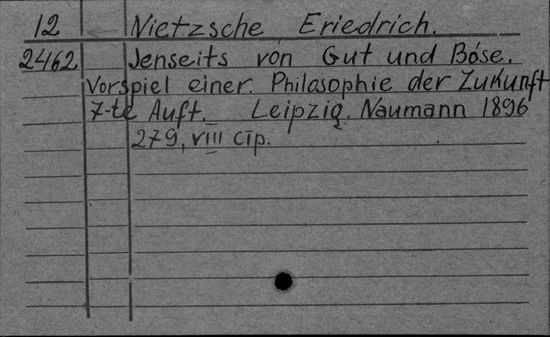 12 Nietzsche Eriedrich.
2462 Jenseits von Gut und Böse.
Vorspiel einer. Philosophie der Zukunft
7-te Auft. Leipzig. Naumann 1896
279, VIII cтр.